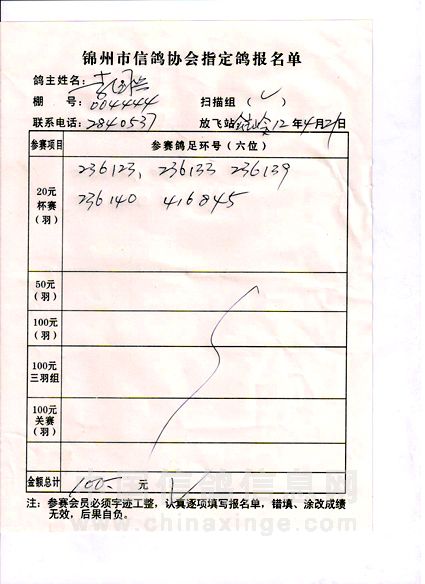 锦州市信鸽协会指定鸽报名单
鸽主姓名:
棚 号: 004444 扫描组 (✓)
联系电话: 2840537 放飞站 12年4月21日
参赛项目 参赛鸽足环号(六位)
20元
杯赛
(羽)
236123, 236133 236139
236140 416845
50元
(羽)
100元
(羽)
100元
三羽组
100元
关赛
(羽)
金额总计 100- 元
注: 参赛会员必须字迹工整, 认真逐项填写报名单, 错填、涂改成绩
无效, 后果自负。
中国信鸽信息网
www.chinaxinge.com